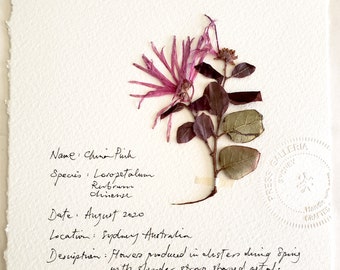 Name : China Pink
Species : Loropetalum
Rubrum
chinense
Date : August 2020
Location : Sydney Australia
Description : Flowers produced in clusters during Spring
with slender strap shaped petals
PRESS GALLERIA